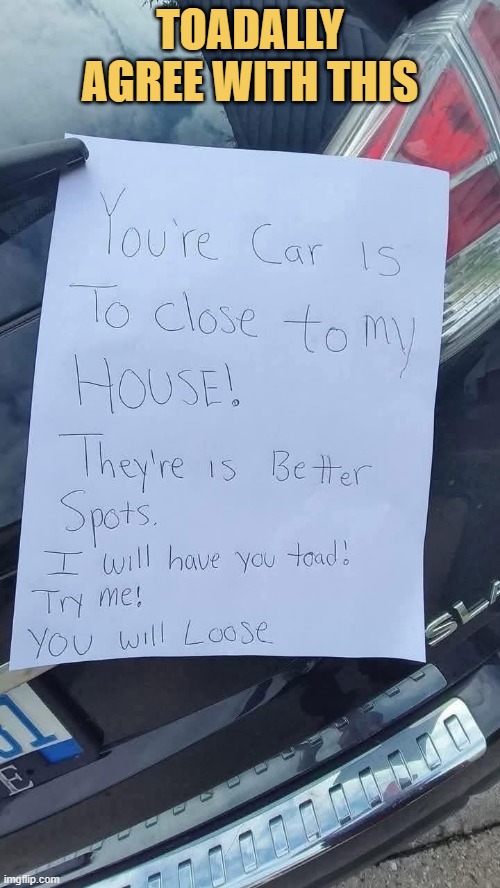 TOADALLY
AGREE WITH THIS
You're Car is
To close to my
HOUSE!
They're is Better
Spots.
I will have you toad!
Try me!
YOU will Loose
SLA
51
E
imgflip.com